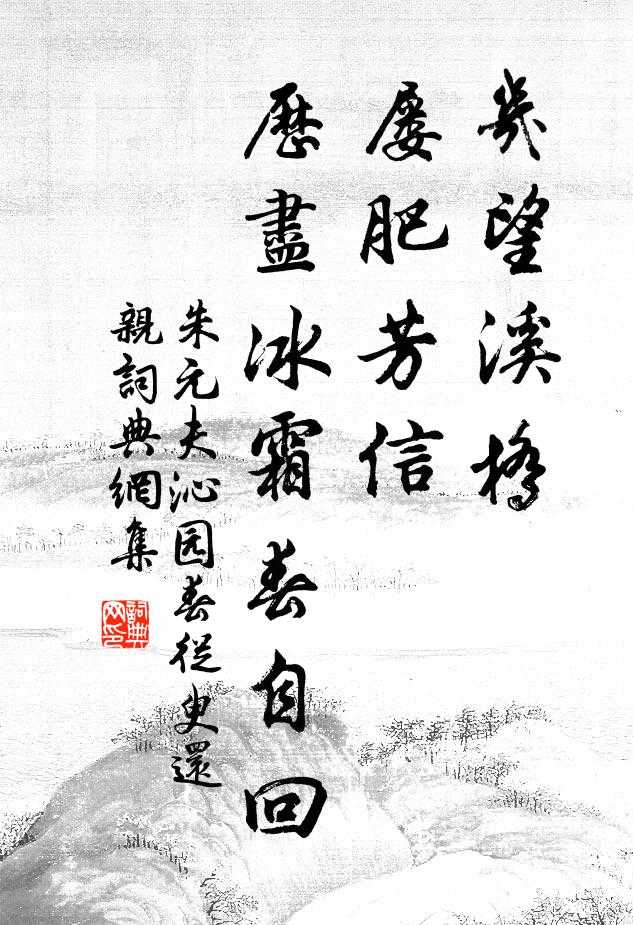 幾望溪橋
屡肥芳信
歷盡冰霜春自回
朱元夫沁园春從史還
親詞典網集
詞典网印